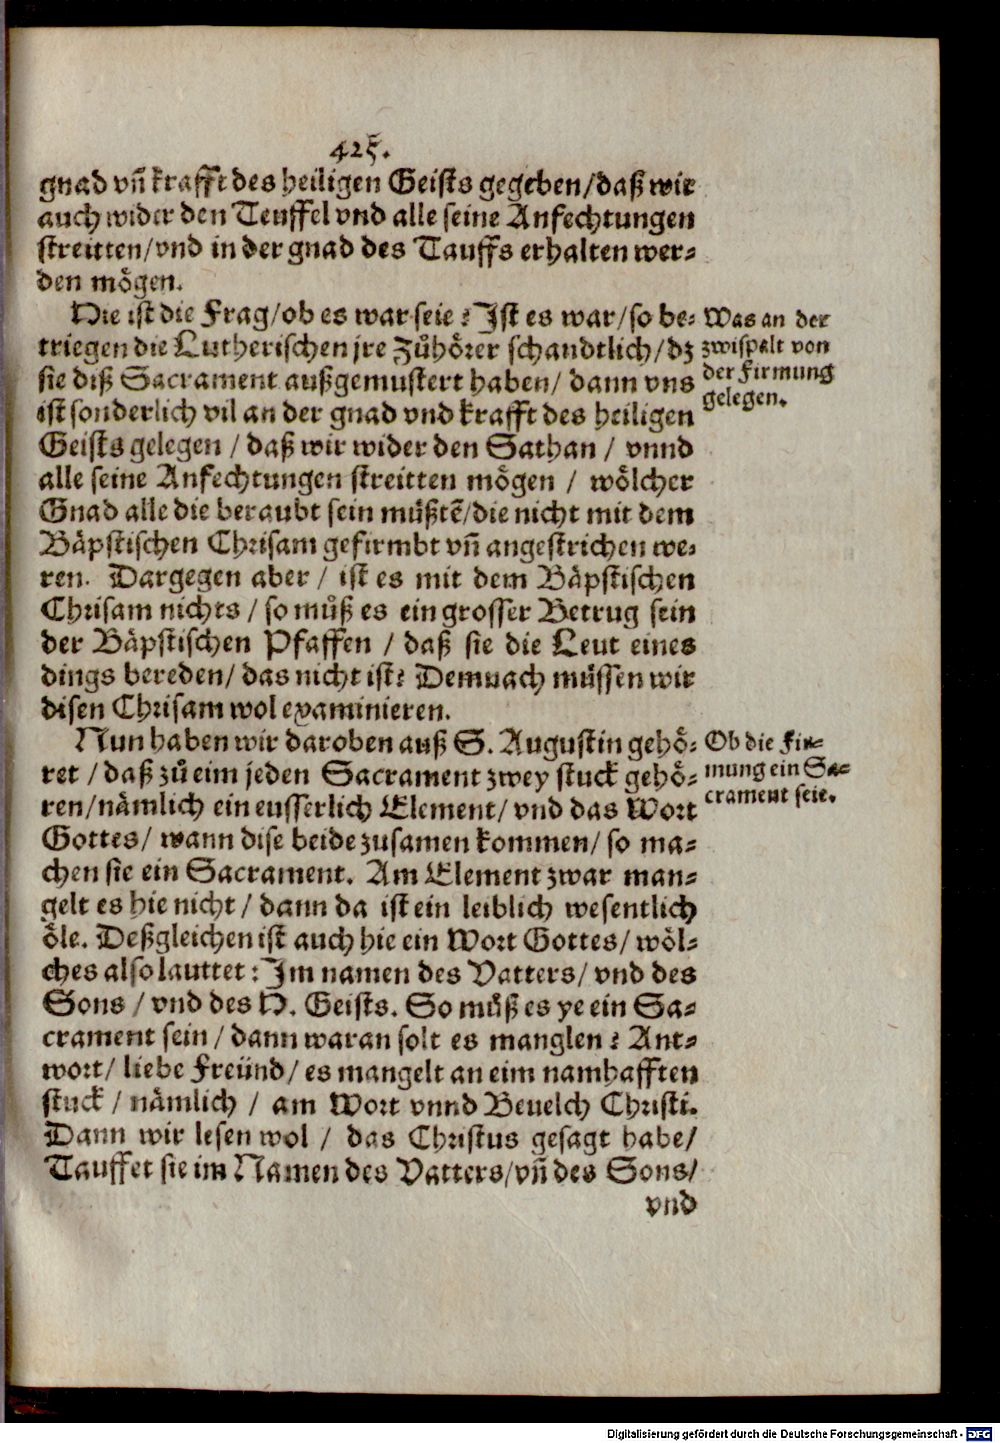 425.
gnad vñ krafft des heiligen Geists gegeben/daß wir
auch wider den Teuffel vnd alle seine Anfechtungen
streitten/vnd in der gnad des Tauffs erhalten wer⸗
den mögen.
Hie ist die Frag/ob es war seie? Ist es war/so be⸗
triegen die Lutherischen jre Zůhörer schandtlich/dz
sie diß Sacrament außgemustert haben/ dann vns
ist sonderlich vil an der gnad vnd krafft des heiligen
Geists gelegen / daß wir wider den Sathan / vnnd
alle seine Anfechtungen streitten mögen / wölcher
Gnad alle die beraubt sein müßtē/die nicht mit dem
Bäpstischen Chrisam gefirmbt vñ angestrichen we⸗
ren. Dargegen aber / ist es mit dem Bäpstischen
Chrisam nichts / so můß es ein grosser Betrug sein
der Bäpstischen Pfaffen / daß sie die Leut eines
dings bereden/ das nicht ist? Demnach müssen wir
disen Chrisam wol examinieren.
Was an der
zwispalt von
der Firmung
gelegen.
Nun haben wir daroben auß S. Augustin gehö⸗
ret / daß zů eim jeden Sacrament zwey stuck gehö⸗
ren/nämlich ein eusserlich Element/ vnd das Wort
Gottes/ wann dise beide zusamen kommen/ so ma⸗
chen sie ein Sacrament. Am Element zwar man⸗
gelt es hie nicht / dann da ist ein leiblich wesentlich
öle. Deßgleichen ist auch hie ein Wort Gottes/ wöl⸗
ches also lauttet: Im namen des Vatters/ vnd des
Sons / vnd des H. Geists. So můß es ye ein Sa⸗
crament sein / dann waran solt es manglen? Ant⸗
wort/ liebe Freünd/ es mangelt an eim namhafften
stuck / nämlich / am Wort vnnd Beuelch Christi.
Dann wir lesen wol / das Christus gesagt habe/
Tauffet sie im Namen des Vatters/vñ des Sons/
vnd
Ob die Fir⸗
mung ein Sa⸗
crament seie.
Digitalisierung gefördert durch die Deutsche Forschungsgemeinschaft - DFG